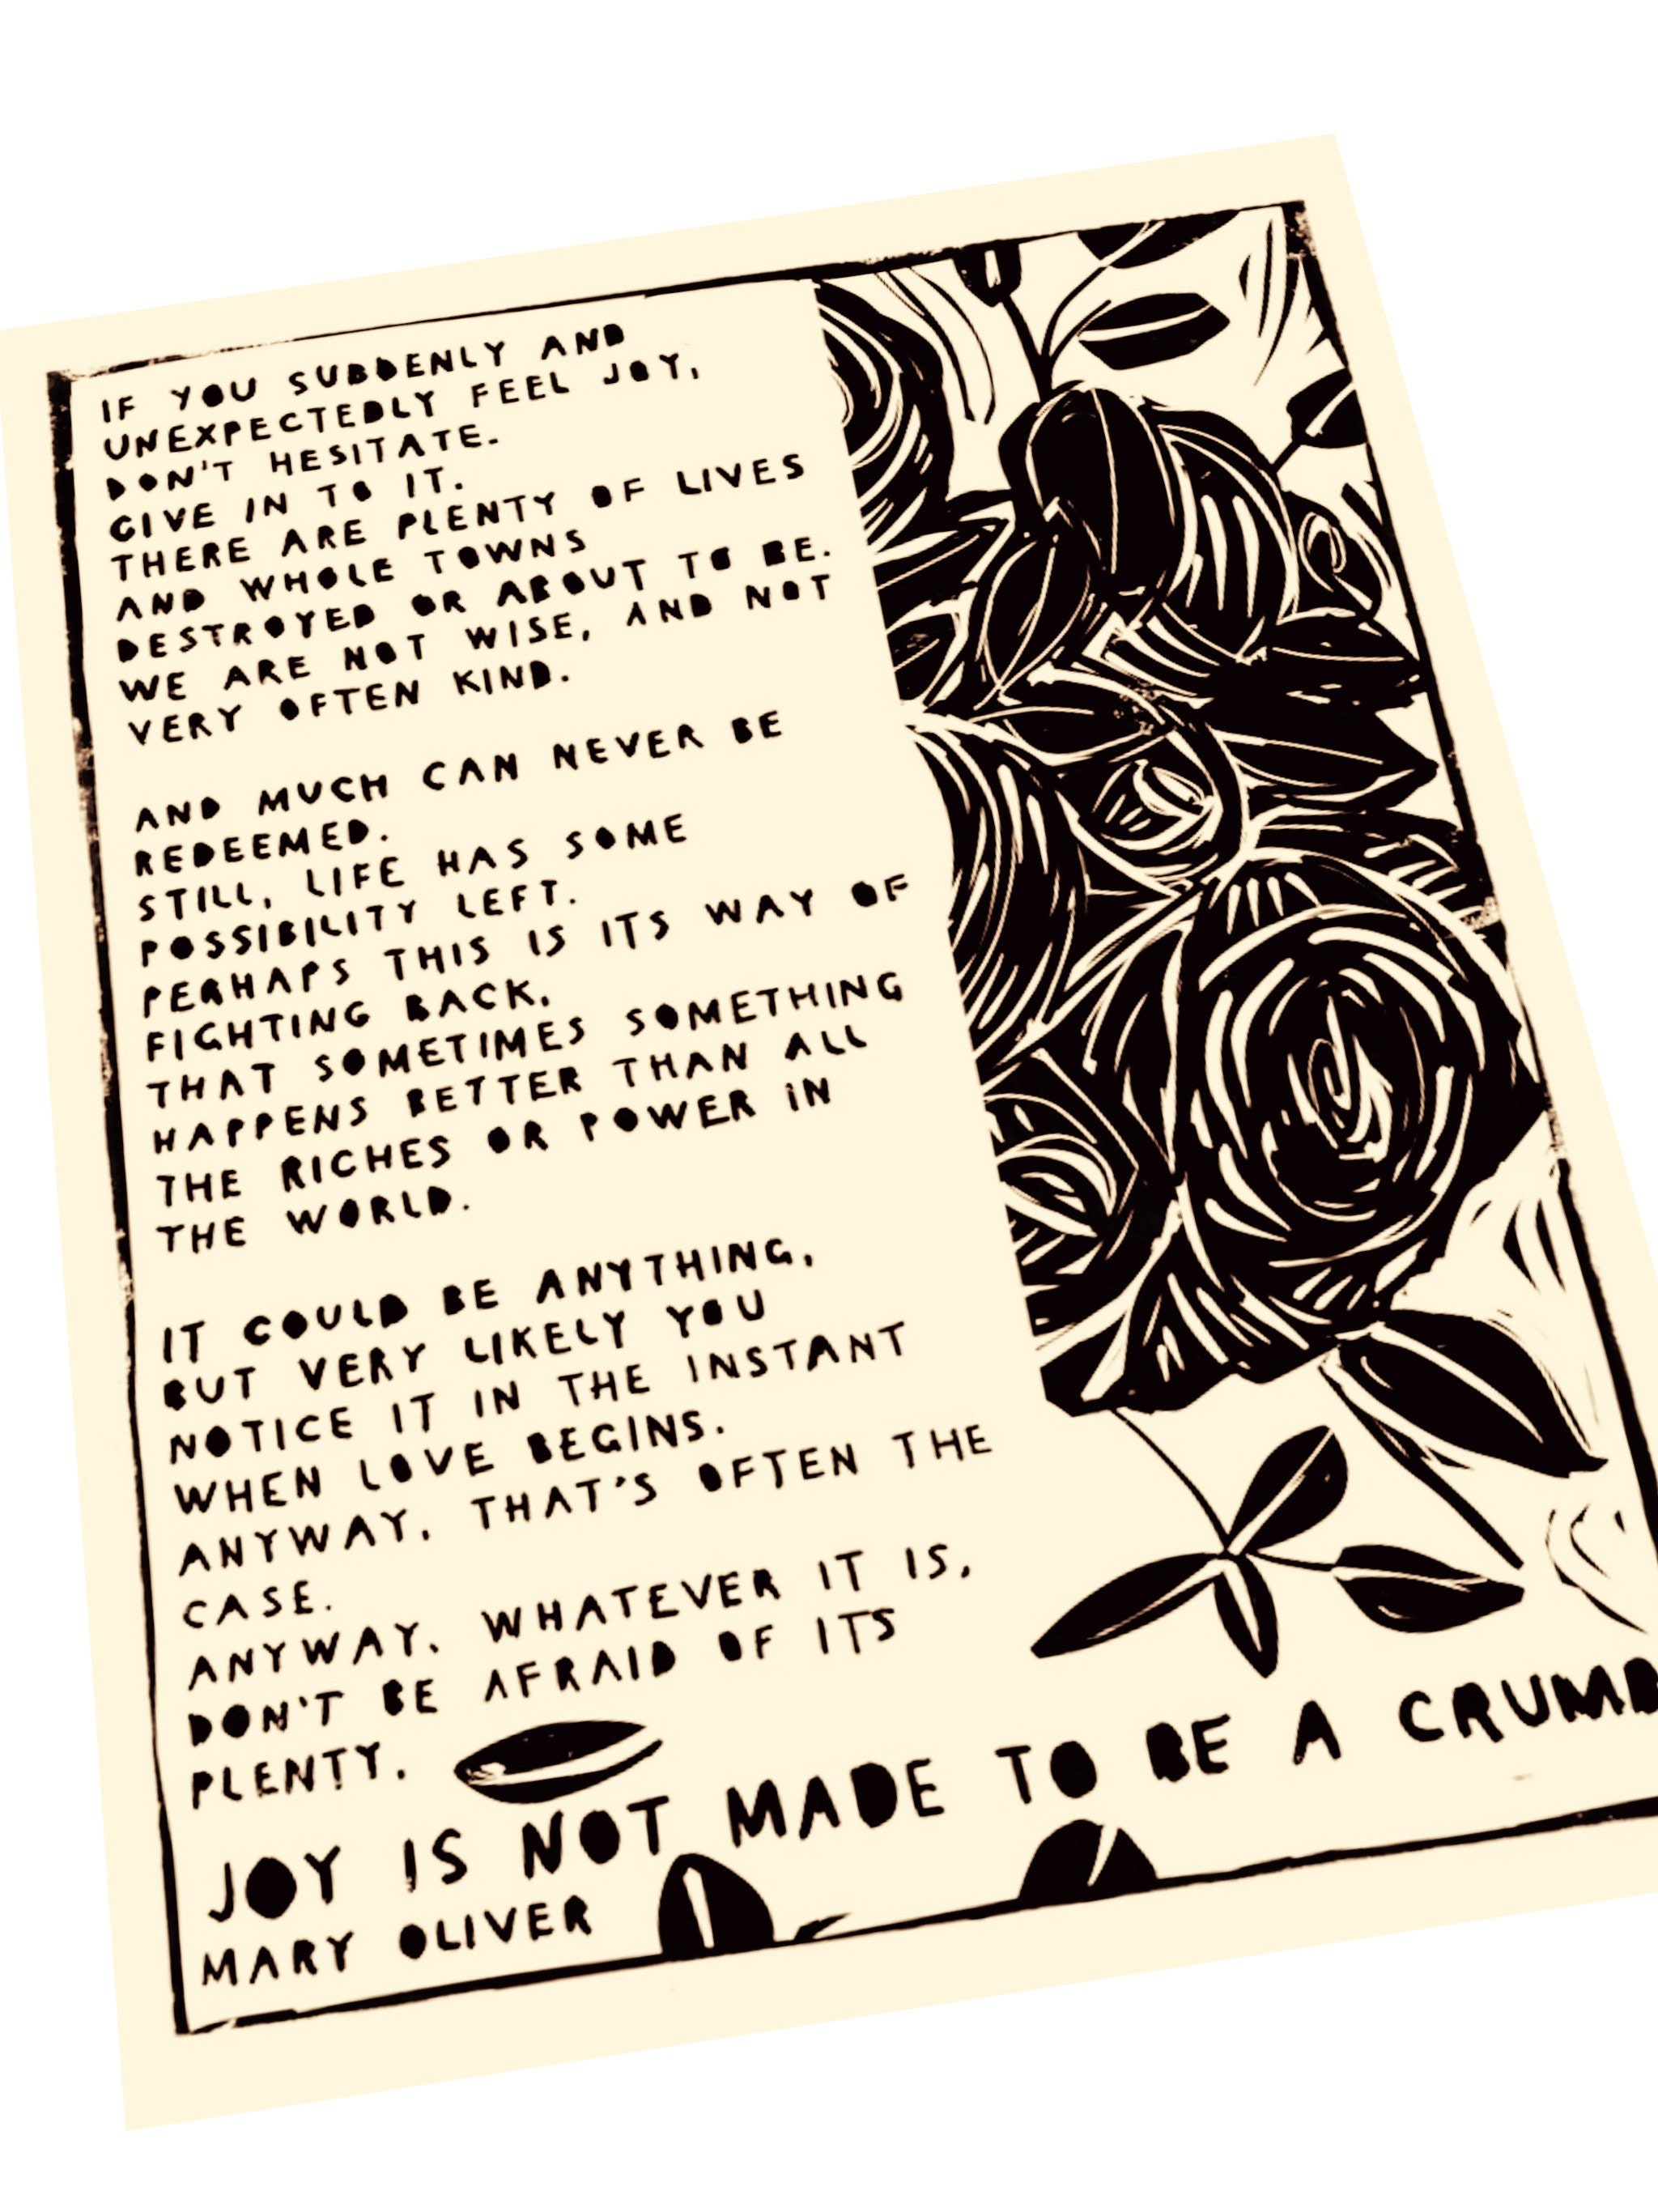 IF YOU SUDDENLY AND
UNEXPECTEDLY FEEL JOY,
DON'T HESITATE.
GIVE IN TO IT.
THERE ARE PLENTY OF LIVES
AND WHOLE TOWNS
DESTROYED OR ABOUT TO BE.
WE ARE NOT WISE, AND NOT
VERY OFTEN KIND.
AND MUCH CAN NEVER BE
REDEEMED.
STILL, LIFE HAS SOME
POSSIBILITY LEFT.
PERHAPS THIS IS ITS WAY OF
FIGHTING BACK,
THAT SOMETIMES SOMETHING
HAPPENS BETTER THAN ALL
THE RICHES OR POWER IN
THE WORLD.
IT COULD BE ANYTHING,
BUT VERY LIKELY YOU
NOTICE IT IN THE INSTANT
WHEN LOVE BEGINS.
ANYWAY, THAT'S OFTEN THE
CASE.
ANYWAY, WHATEVER IT IS,
DON'T BE AFRAID OF ITS
PLENTY,
JOY IS NOT MADE TO BE A CRUMB
MARY OLIVER